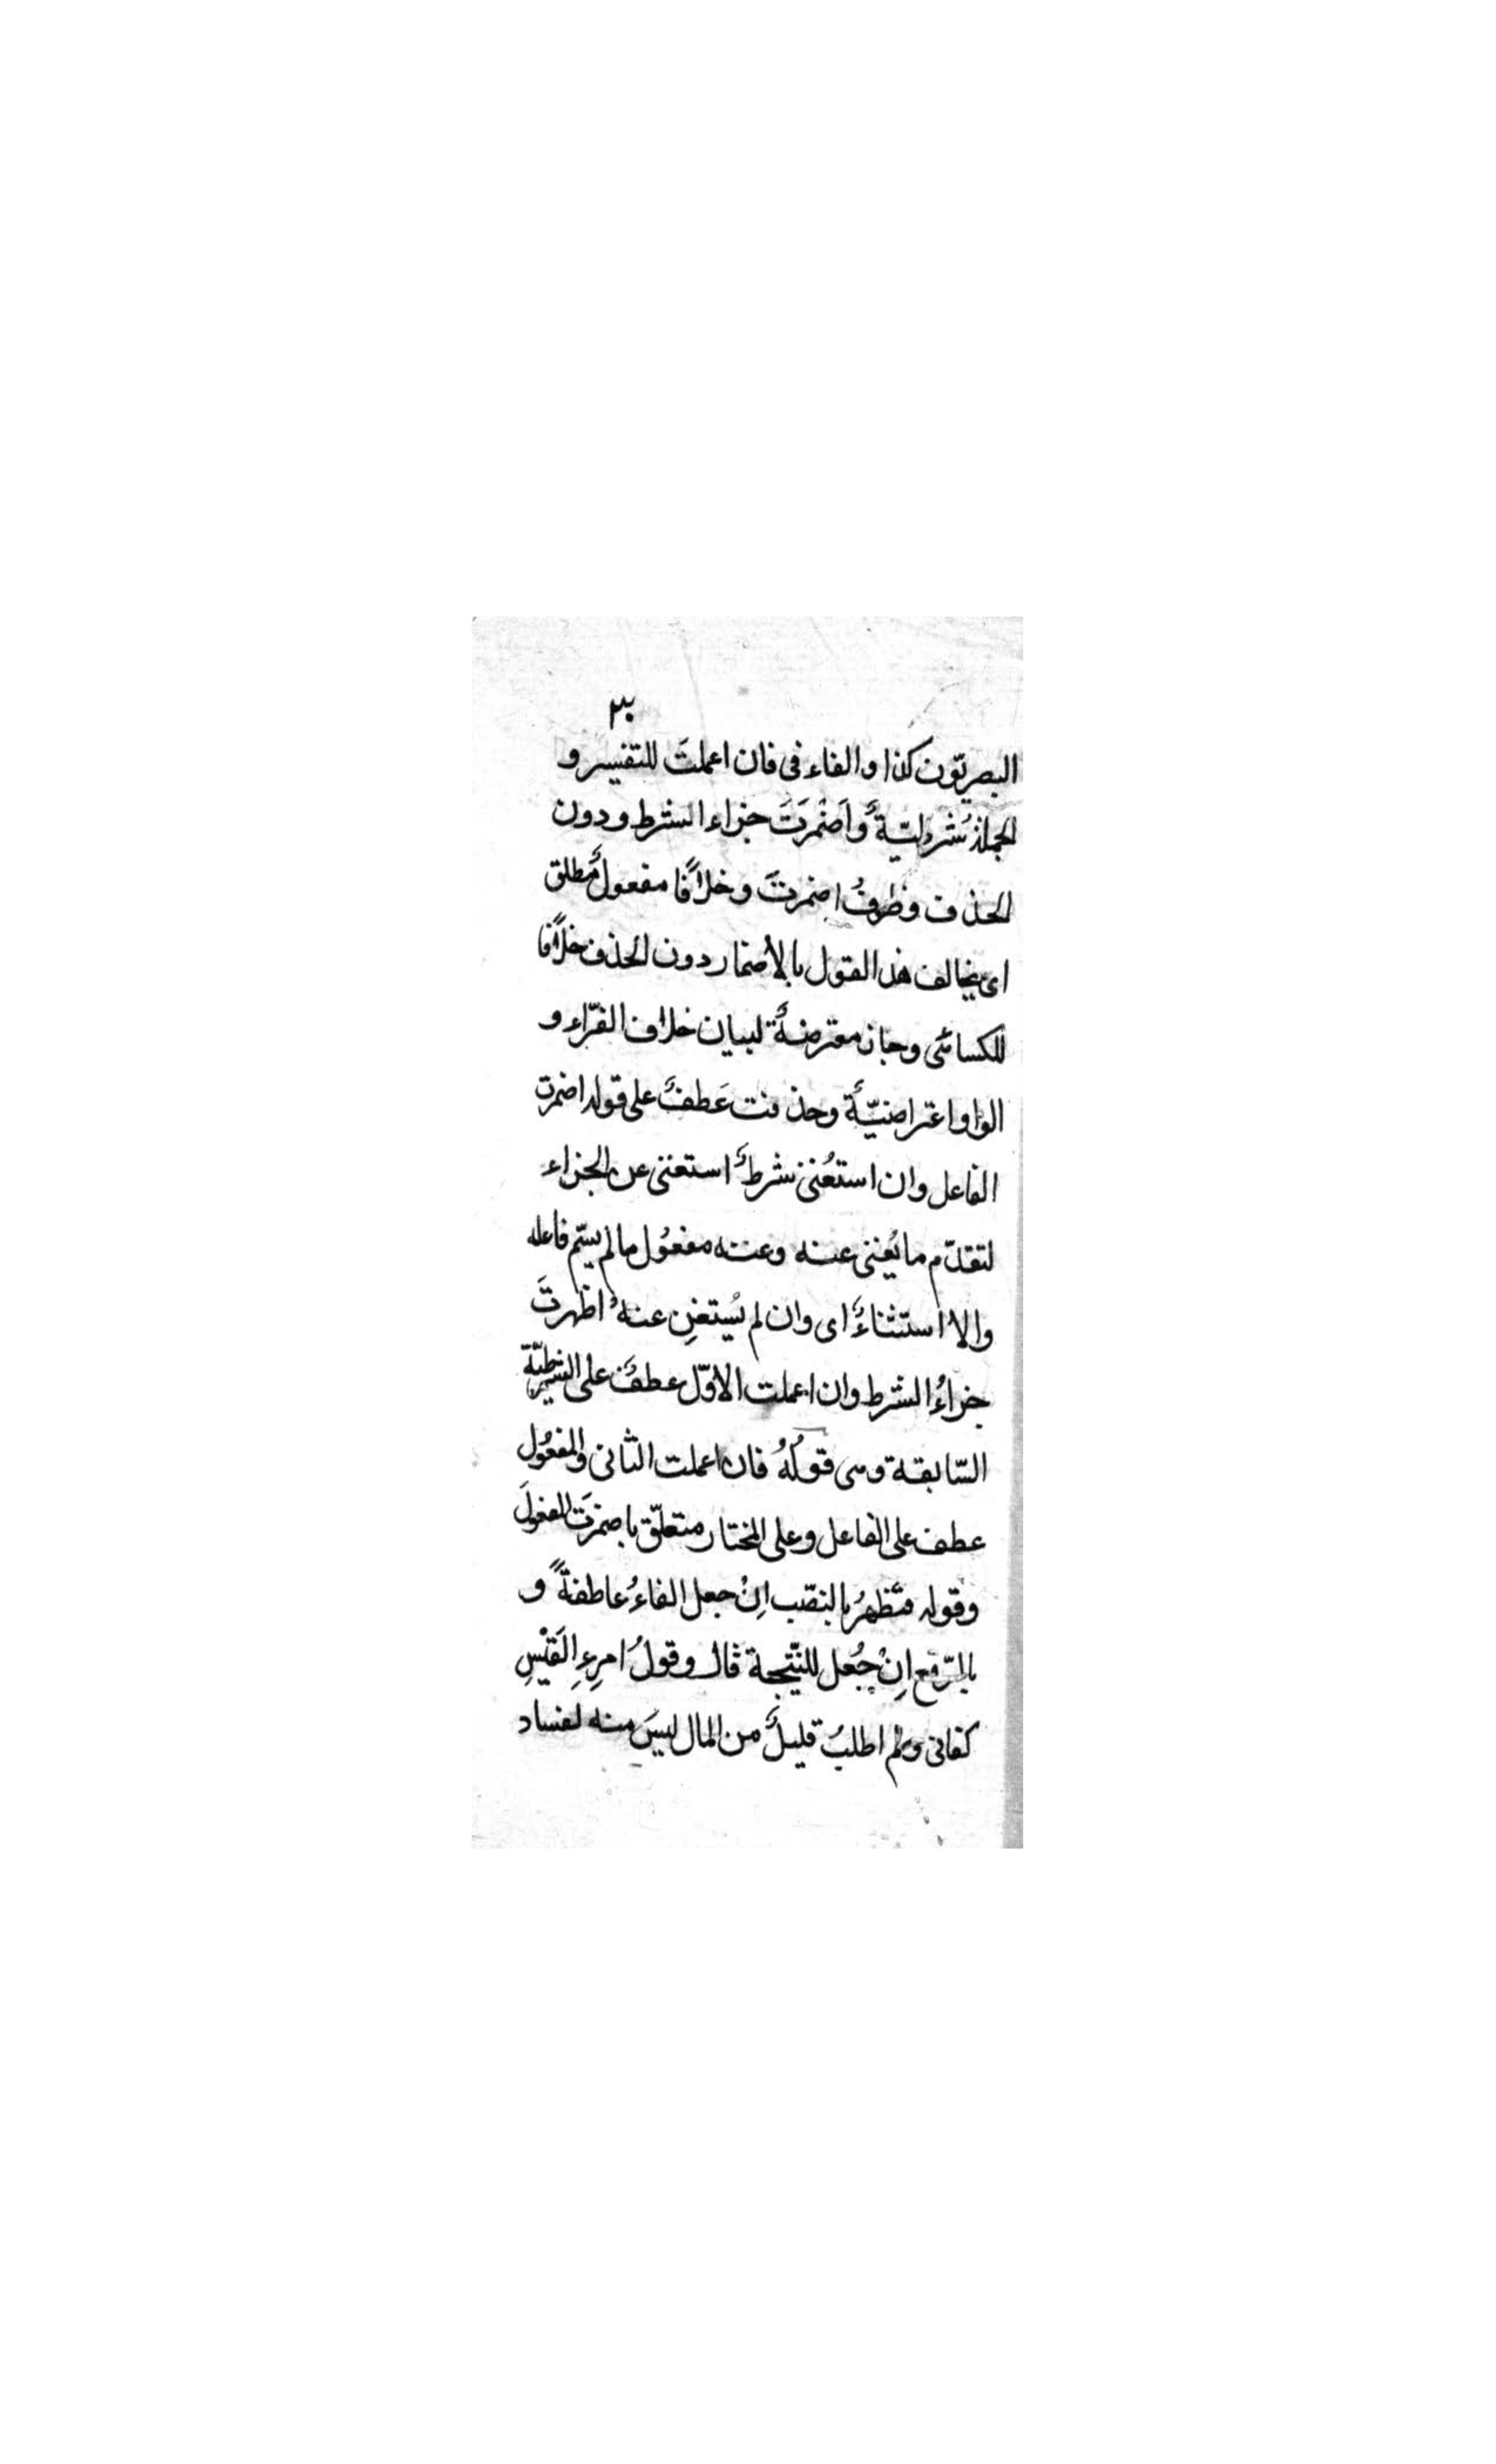 البصريّون كذا والفاء فى فان اعملتَ للتفسير و
الجملة شرطيّةٌ واَضْمَرَتَ جزاء الشرط ودون
الحذف وظرفُ اضمرتَ وخلافًا مفعولٌ مطلق
اى يخالف هذا القول بالأضمار دون الحذف خلافًا
للكسائى وجاز معترضةٌ لبيان خلاف الفرّاء و
الواو اعتراضيّةٌ وحذفت عَطفٌ على قوله اضمرت
الفاعل وان استُغنى شرطٌ استغنى عن الجزاء
لتقدّم ما يُغنى عنه وعنه مفعُول ما لم يسمّ فاعله
والا استثناءٌ اى وان لم يُستغنِ عنهُ اظهرتَ
جزاءُ الشرط وان اعملت الاوّل عطفٌ على الشرطيّة
السّابقة وهى قولُهُ فان اعملت الثانى والمفعُول
عطف على الفاعل وعلى المختار متعلّق باضمرَت المفعولَ
وقوله فتَظهرُ بالنصّب اِنْ جعل الفاءُ عاطفةً و
بالرّفع اِنْ جُعل للنّتيجة قال وقولُ امرِءِ القَيْسِ
كفانى ولم اطلبُ قليلٌ من المال ليسَ منه لفساد